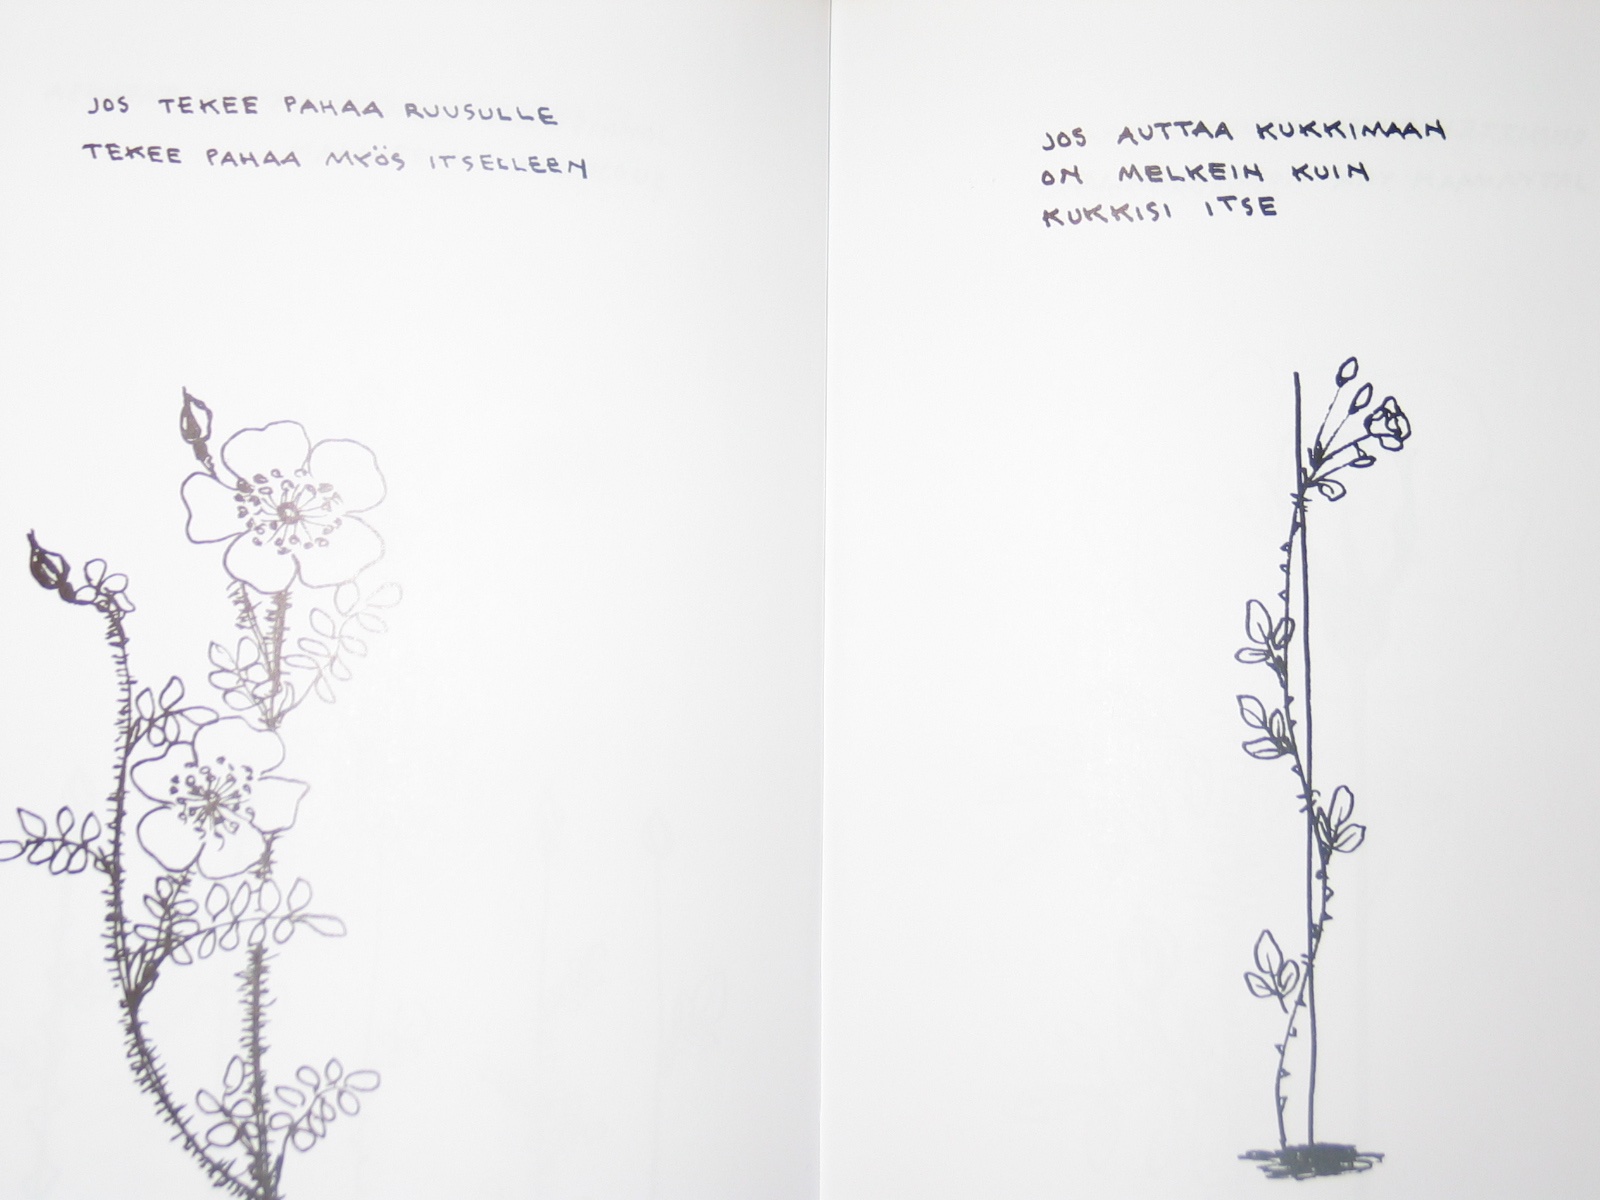 JOS TEKEE PAHAA RUUSULLE
TEKEE PAHAA MYÖS ITSELLEEN
JOS AUTTAA KUKKIMAAN
ON MELKEIN KUIN
KUKKISI ITSE